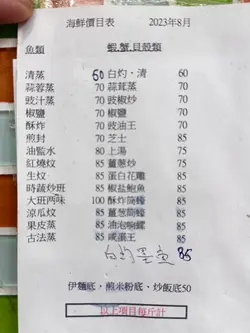 海鮮價目表 2023年8月
魚類 蝦.蟹.貝殼類
清蒸 60 白灼·清 60
蒜蓉蒸 70 蒜茸蒸 70
豉汁蒸 70 豉椒炒 70
椒鹽 70 椒鹽 70
酥炸 70 豉油王 70
煎封 70 芝士 85
油鹽水 80 上湯 75
紅燒炆 85 薑葱炒 75
生炆 85 蛋白花雕 85
時蔬炒班 85 椒鹽鮑魚 85
大班两味 100 酥炸 85
涼瓜炆 85 85
果皮蒸 85 油泡 85
古法蒸 85 85
白灼 85
伊麵底·煎米粉底·炒飯底50
以上項目每斤計